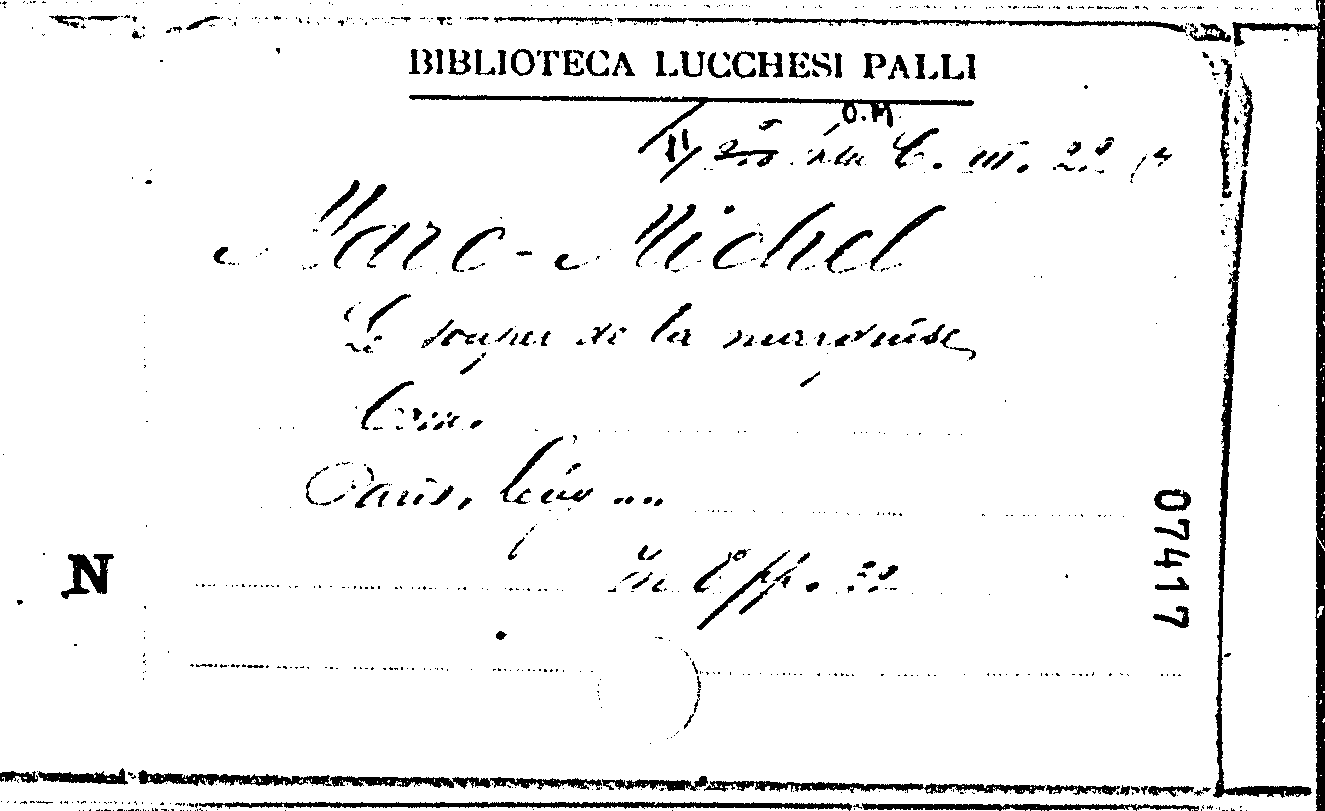 BIBLIOTECA LUCCHESI PALLI
O.M.
C. III. 22
Marc-Michel
Le souper de la marquise
Com.
Paris, Lévy ....
In 8° pp. 32
N
07417